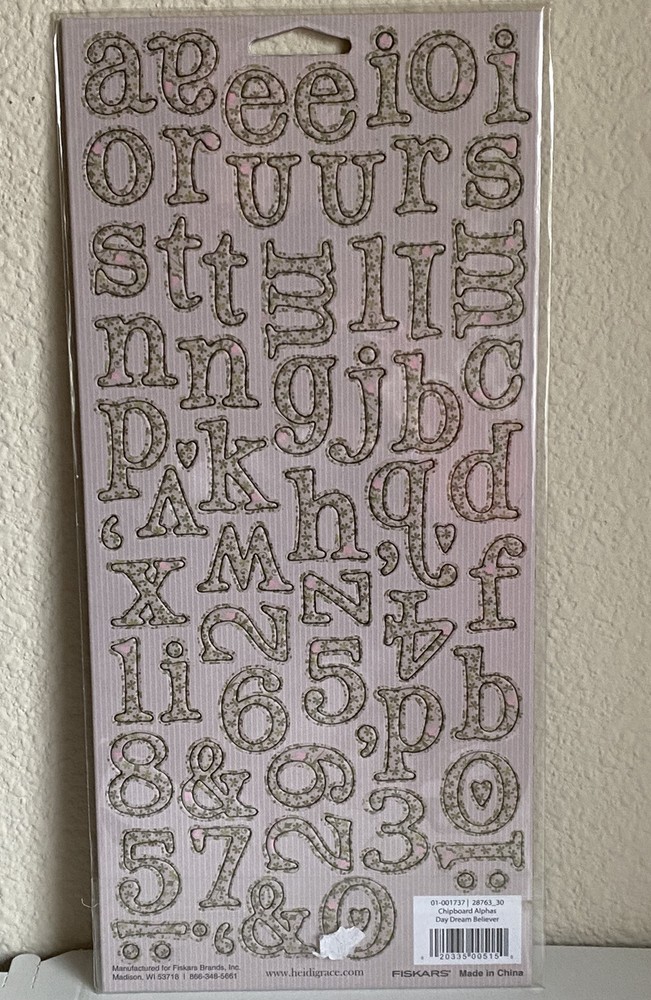 a a e e i o i
o r u u r s
s t t m l l m
n n g j b c
p k h q d
' v w , f
x z 4
l i 2 5 b
6 , p
8 & 9 0
5 7 2 3 !
! ' & 0
01-001737 | 28763_30
Chipboard Alphas
Day Dream Believer
20335 00515
Manufactured for Fiskars Brands, Inc.
Madison, WI 53718 | 866-348-5661
www.heidigrace.com
FISKARS® Made in China